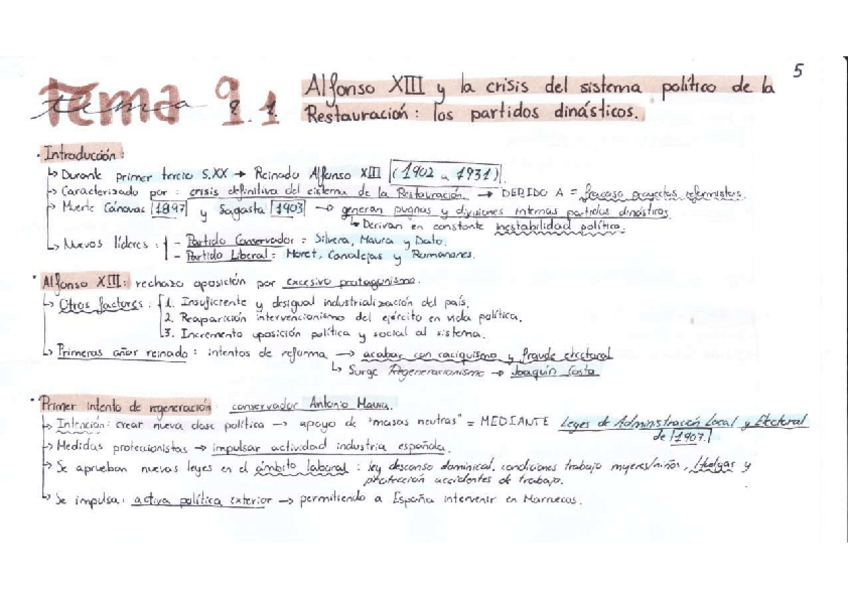 5
Tema 9.1 Alfonso XIII y la crisis del sistema político de la
tema 9.1. Restauración: los partidos dinásticos.
· Introducción:
↳ Durante primer tercio S.XX → Reinado Alfonso XIII (1902 a 1931).
↳ Caracterizado por: crisis definitiva del sistema de la Restauración. → DEBIDO A = fracaso proyectos reformistas.
↳ Muerte Cánovas 1897 y Sagasta 1903 → generan pugnas y divisiones internas partidos dinásticos.
↳ Derivan en constante inestabilidad política.
↳ Nuevos líderes: - Partido Conservador = Silvera, Maura y Dato.
- Partido Liberal = Moret, Canalejas y Romanones.
· Alfonso XIII: rechazo oposición por excesivo protagonismo.
↳ Otros factores: 1. Insuficiente y desigual industrialización del país.
2. Reaparición intervencionismo del ejército en vida política.
3. Incremento oposición política y social al sistema.
↳ Primeros años reinado: intentos de reforma → acabar con caciquismo y fraude electoral
↳ Surge Regeneracionismo → Joaquín Costa
· Primer intento de regeneración: conservador Antonio Maura.
↳ Intención: crear nueva clase política → apoyo de "masas neutras" = MEDIANTE Leyes de Administración Local y Electoral
de 1907.
↳ Medidas proteccionistas → impulsar actividad industria española.
↳ Se aprueban nuevas leyes en el ámbito laboral: ley descanso dominical, condiciones trabajo mujeres/niños, Huelgas y
protección accidentes de trabajo.
↳ Se impulsa: activa política exterior → permitiendo a España intervenir en Marruecos.